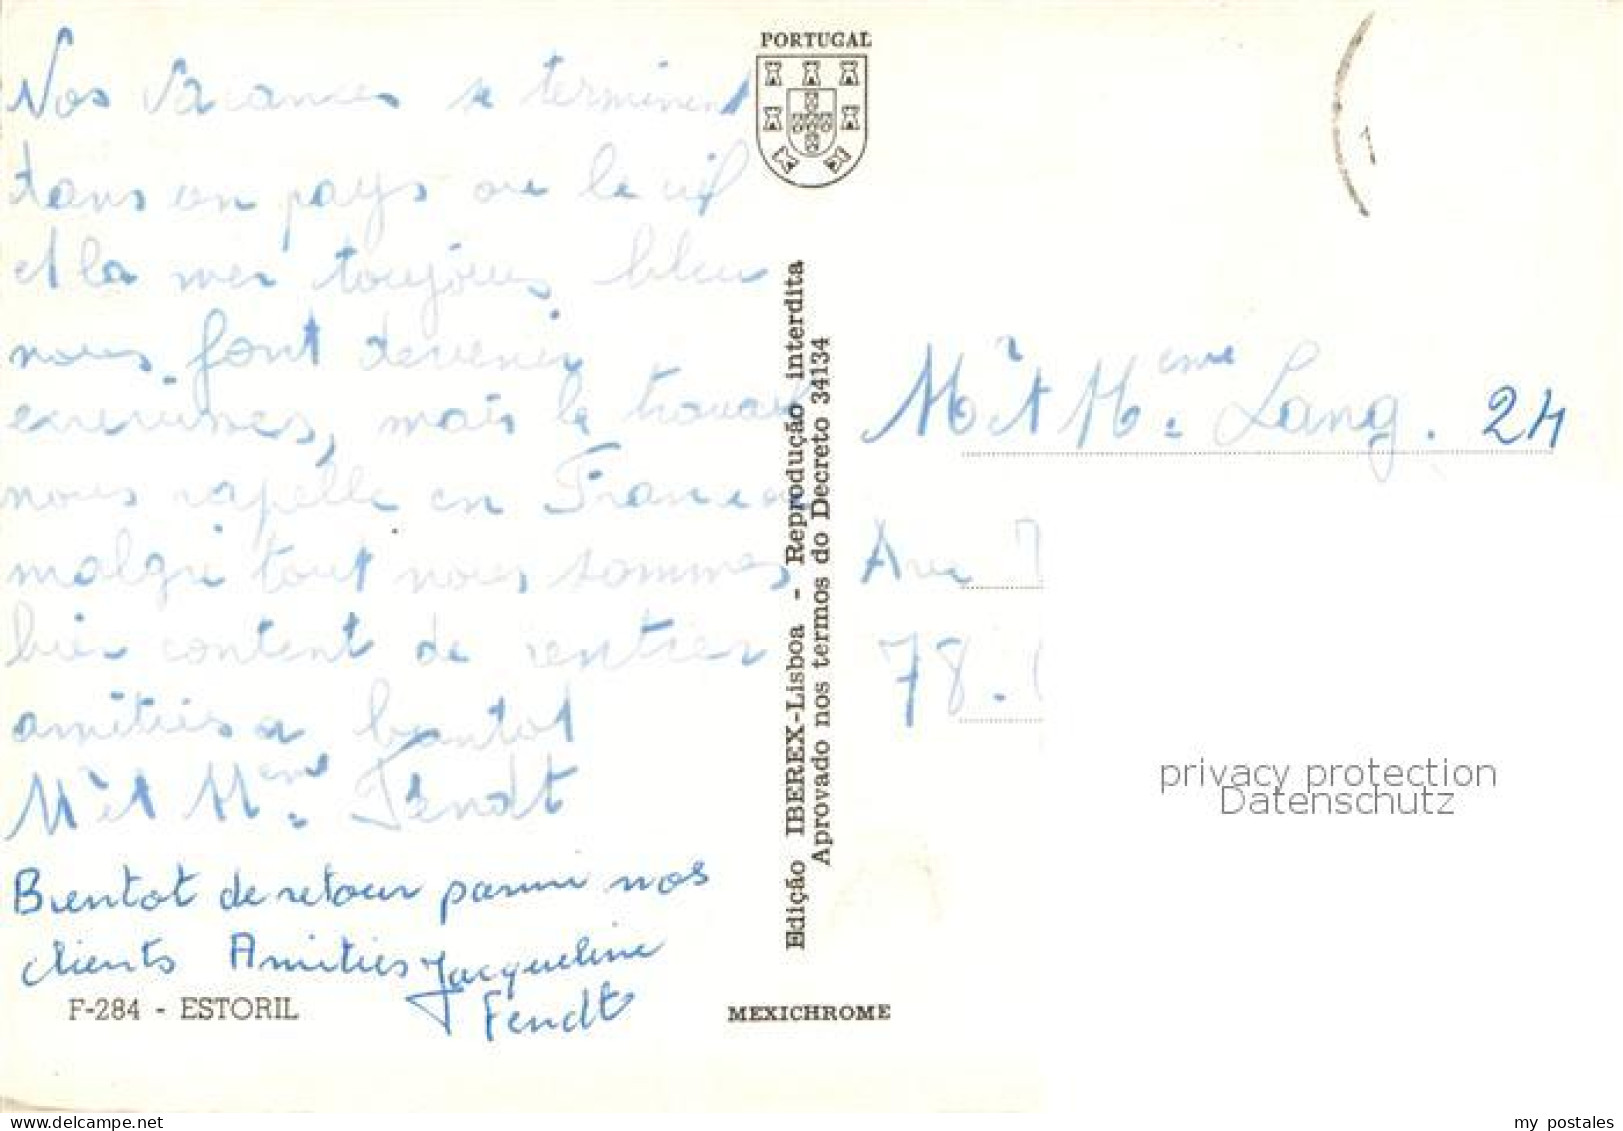 Nos Vacances se terminent
dans un pays ou le ciel
et la mer toujours bleu
nous font devenir
mais le travail
nous rapelle en France
malgré tout nous sommes
bien content de rentrer
amitiés a bientot
Mr et Mme. Fendt
Bientot de retour parmi nos
clients Amitiés Jacqueline
Fendt
F-284 - ESTORIL
PORTUGAL
Edição IBEREX-Lisboa - Reprodução interdita
Aprovado nos termos do Decreto 34134
MEXICHROME
Mr et Meme. Lang. 24
78.
privacy protection
Datenschutz
my postales